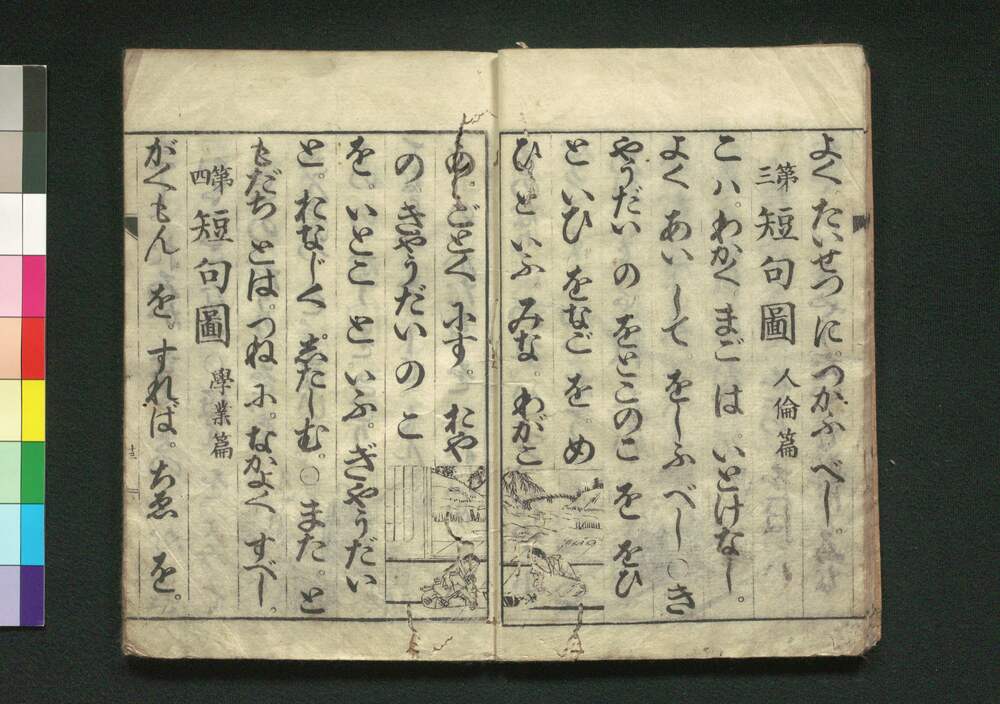 よく たいせつ に。つかふ べし。
第三 短句圖 人倫篇
こハ。わかく まごは いとけなし。
よく あいして。をしふ べし○き
やうだい の をとこのこ を をひ
と いひ をなご を。め
ひ。と いふ みな。わがこ
の。ごとく にす。おや
の。きやうだい の こ
を。いとこ と いふ。ぎやうだい
と。おなじく したしむ。○また。と
もだち とは。つね に。なかよく すべし。
第四 短句圖 學業篇
がくもん を。すれば。ちゑ を。
十三